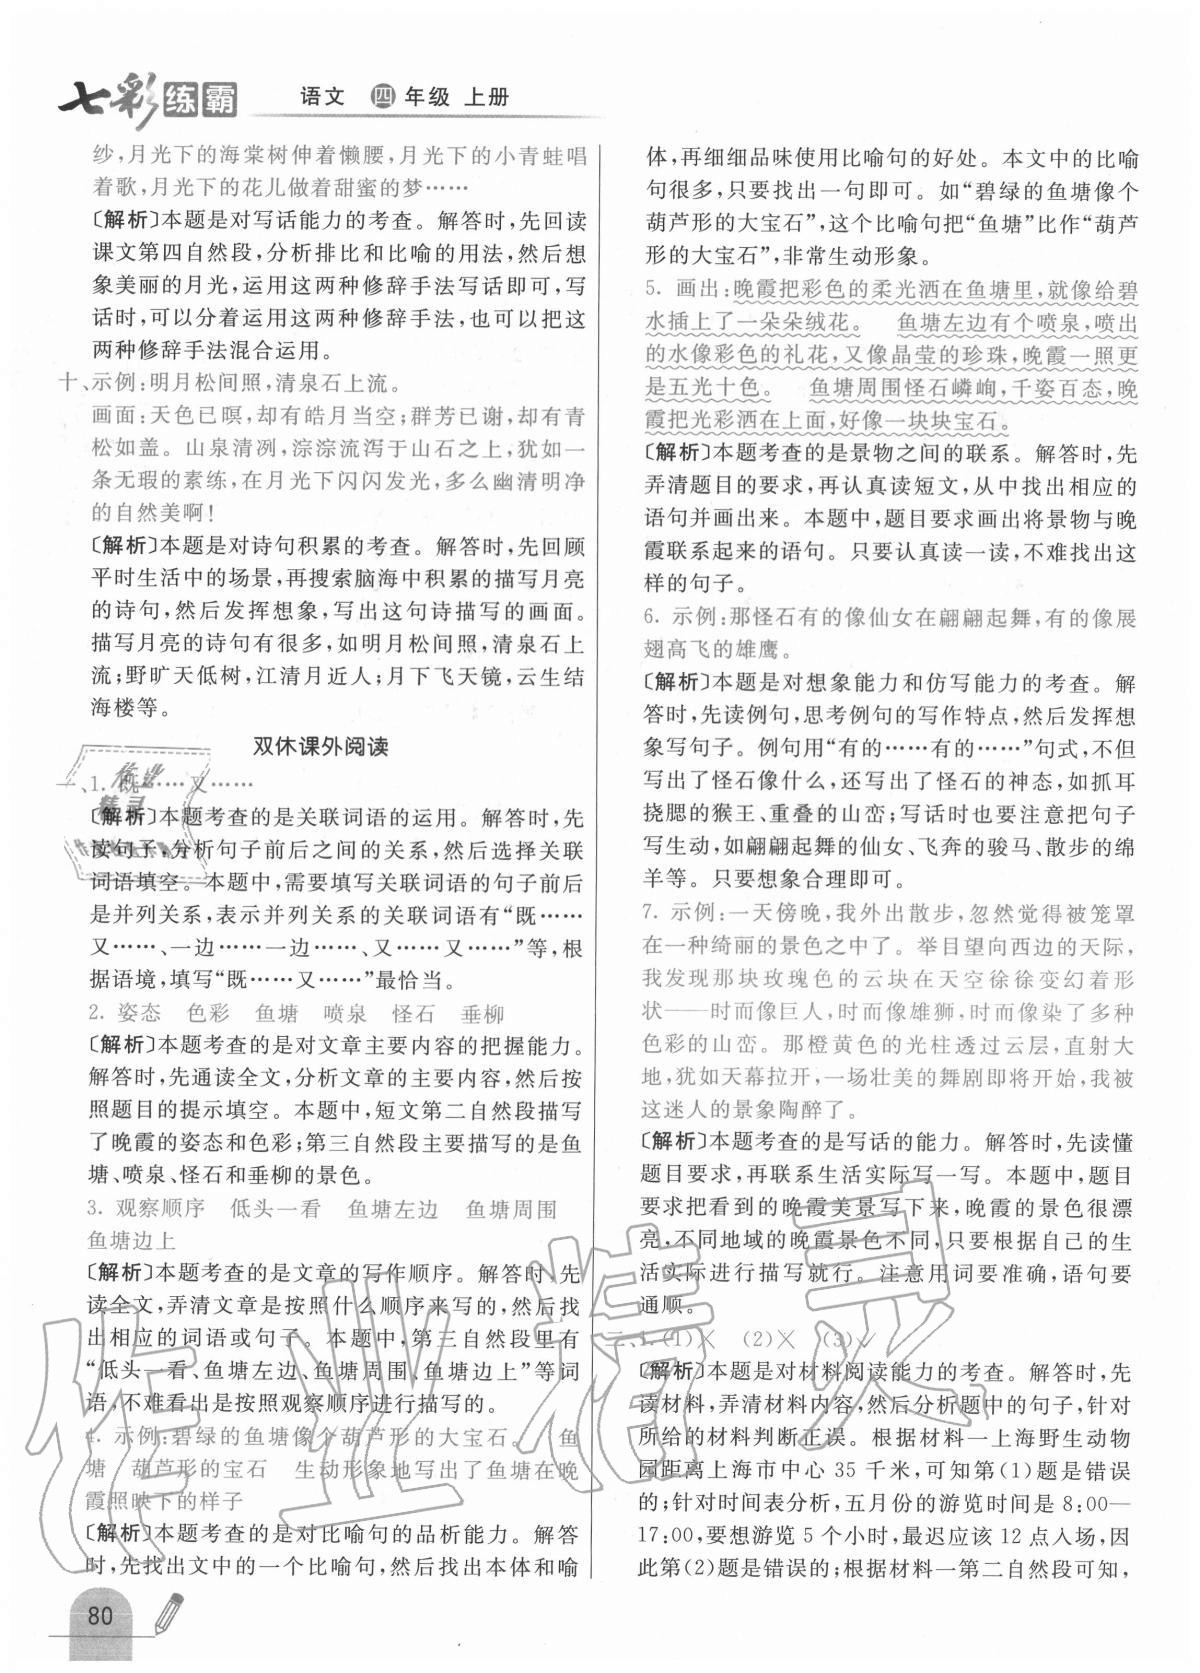 七彩练霸 语文 四年级 上册
纱,月光下的海棠树伸着懒腰,月光下的小青蛙唱
着歌,月光下的花儿做着甜蜜的梦……
〔解析〕本题是对写话能力的考查。解答时,先回读
课文第四自然段,分析排比和比喻的用法,然后想
象美丽的月光,运用这两种修辞手法写话即可,写
话时,可以分着运用这两种修辞手法,也可以把这
两种修辞手法混合运用。
十、示例:明月松间照,清泉石上流。
画面:天色已暝,却有皓月当空;群芳已谢,却有青
松如盖。山泉清冽,淙淙流泻于山石之上,犹如一
条无瑕的素练,在月光下闪闪发光,多么幽清明净
的自然美啊!
〔解析〕本题是对诗句积累的考查。解答时,先回顾
平时生活中的场景,再搜索脑海中积累的描写月亮
的诗句,然后发挥想象,写出这句诗描写的画面。
描写月亮的诗句有很多,如明月松间照,清泉石上
流;野旷天低树,江清月近人;月下飞天镜,云生结
海楼等。
双休课外阅读
一、1. 既……又……
〔解析〕本题考查的是关联词语的运用。解答时,先
读句子,分析句子前后之间的关系,然后选择关联
词语填空。本题中,需要填写关联词语的句子前后
是并列关系,表示并列关系的关联词语有“既……
又……、一边……一边……、又……又……”等,根
据语境,填写“既……又……”最恰当。
2. 姿态 色彩 鱼塘 喷泉 怪石 垂柳
〔解析〕本题考查的是对文章主要内容的把握能力。
解答时,先通读全文,分析文章的主要内容,然后按
照题目的提示填空。本题中,短文第二自然段描写
了晚霞的姿态和色彩;第三自然段主要描写的是鱼
塘、喷泉、怪石和垂柳的景色。
3. 观察顺序 低头一看 鱼塘左边 鱼塘周围
鱼塘边上
〔解析〕本题考查的是文章的写作顺序。解答时,先
读全文,弄清文章是按照什么顺序来写的,然后找
出相应的词语或句子。本题中,第三自然段里有
“低头一看、鱼塘左边、鱼塘周围、鱼塘边上”等词
语,不难看出是按照观察顺序进行描写的。
4. 示例:碧绿的鱼塘像个葫芦形的大宝石。 鱼
塘 葫芦形的宝石 生动形象地写出了鱼塘在晚
霞照映下的样子
〔解析〕本题考查的是对比喻句的品析能力。解答
时,先找出文中的一个比喻句,然后找出本体和喻
体,再细细品味使用比喻句的好处。本文中的比喻
句很多,只要找出一句即可。如“碧绿的鱼塘像个
葫芦形的大宝石”,这个比喻句把“鱼塘”比作“葫芦
形的大宝石”,非常生动形象。
5. 画出:晚霞把彩色的柔光洒在鱼塘里,就像给碧
水插上了一朵朵绒花。 鱼塘左边有个喷泉,喷出
的水像彩色的礼花,又像晶莹的珍珠,晚霞一照更
是五光十色。 鱼塘周围怪石嶙峋,千姿百态,晚
霞把光彩洒在上面,好像一块块宝石。
〔解析〕本题考查的是景物之间的联系。解答时,先
弄清题目的要求,再认真读短文,从中找出相应的
语句并画出来。本题中,题目要求画出将景物与晚
霞联系起来的语句。只要认真读一读,不难找出这
样的句子。
6. 示例:那怪石有的像仙女在翩翩起舞,有的像展
翅高飞的雄鹰。
〔解析〕本题是对想象能力和仿写能力的考查。解
答时,先读例句,思考例句的写作特点,然后发挥想
象写句子。例句用“有的……有的……”句式,不但
写出了怪石像什么,还写出了怪石的神态,如抓耳
挠腮的猴王、重叠的山峦;写话时也要注意把句子
写生动,如翩翩起舞的仙女、飞奔的骏马、散步的绵
羊等。只要想象合理即可。
7. 示例:一天傍晚,我外出散步,忽然觉得被笼罩
在一种绮丽的景色之中了。举目望向西边的天际,
我发现那块玫瑰色的云块在天空徐徐变幻着形
状——时而像巨人,时而像雄狮,时而像染了多种
色彩的山峦。那橙黄色的光柱透过云层,直射大
地,犹如天幕拉开,一场壮美的舞剧即将开始,我被
这迷人的景象陶醉了。
〔解析〕本题考查的是写话的能力。解答时,先读懂
题目要求,再联系生活实际写一写。本题中,题目
要求把看到的晚霞美景写下来,晚霞的景色很漂
亮,不同地域的晚霞景色不同,只要根据自己的生
活实际进行描写就行。注意用词要准确,语句要
通顺。
二、1. (1)× (2)× (3)√
〔解析〕本题是对材料阅读能力的考查。解答时,先
读材料,弄清材料内容,然后分析题中的句子,针对
所给的材料判断正误。根据材料一上海野生动物
园距离上海市中心 35 千米,可知第(1)题是错误
的;针对时间表分析,五月份的游览时间是 8:00—
17:00,要想游览 5 个小时,最迟应该 12 点入场,因
此第(2)题是错误的;根据材料一第二自然段可知,
80
作业精灵
作业
精灵